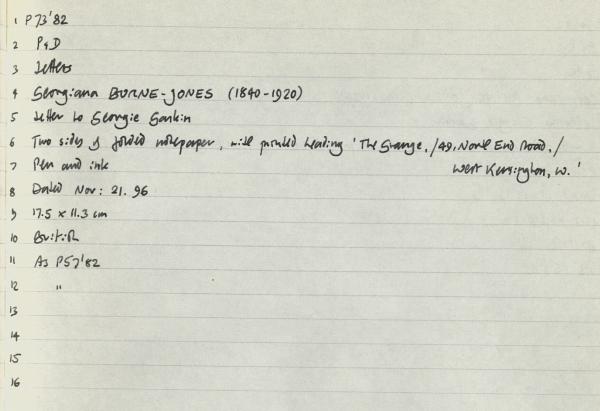 1 P73'82
2 P&D
3 Letters
4 Georgiana BURNE-JONES (1840-1920)
5 Letter to Georgie Gaskin
6 Two sides of folded notepaper, with printed heading 'The Grange, / 49, North End Road, /
West Kensington, W.'
7 Pen and ink
8 Dated Nov: 21. 96
9 17.5 x 11.3 cm
10 British
11 As P57'82
12 "
13
14
15
16